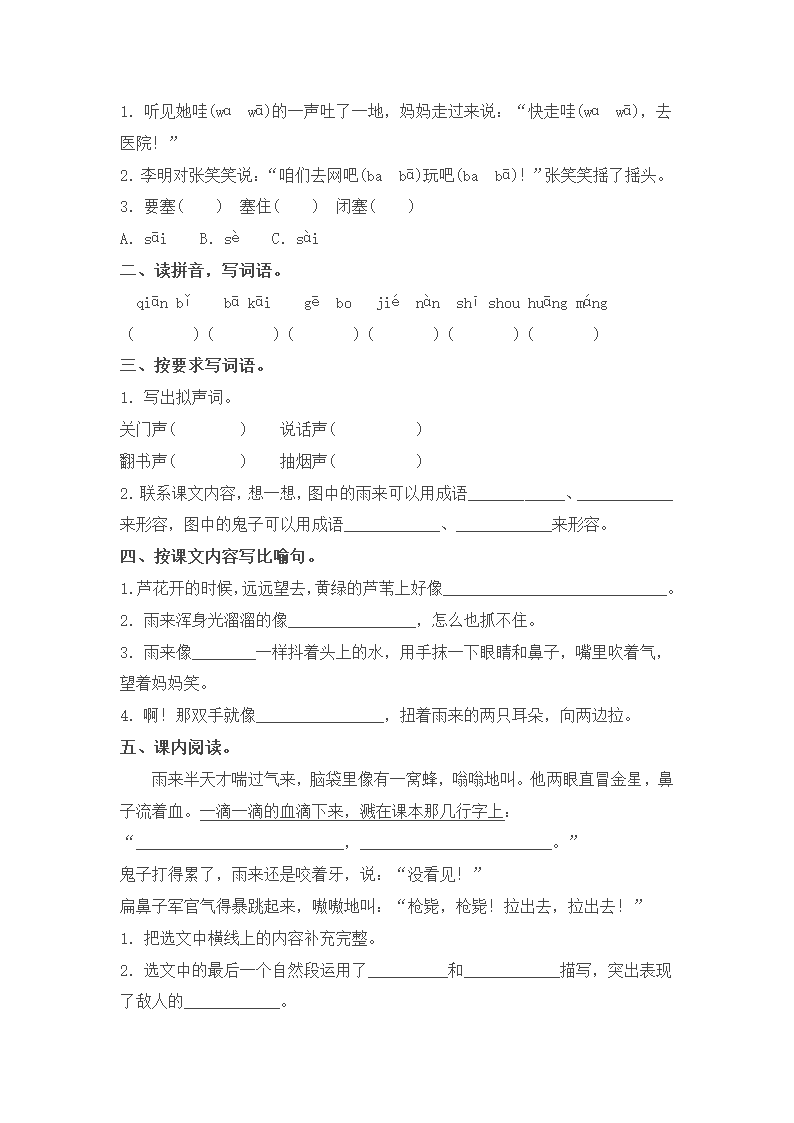 1. 听见她哇(wɑ  wā)的一声吐了一地，妈妈走过来说：“快走哇(wɑ  wā)，去
医院！”
2. 李明对张笑笑说：“咱们去网吧(bɑ  bā)玩吧(bɑ  bā)！”张笑笑摇了摇头。
3. 要塞(    )  塞住(    )  闭塞(    )
A. sāi    B. sè    C. sài
二、读拼音，写词语。
qiān bǐ    bā kāi    gē  bo   jié  nàn  shī shou huāng máng
(       )(       )(       )(       )(       )(       )
三、按要求写词语。
1. 写出拟声词。
关门声(        )    说话声(          )
翻书声(        )    抽烟声(          )
2. 联系课文内容，想一想，图中的雨来可以用成语____________、____________
来形容，图中的鬼子可以用成语____________、____________来形容。
四、按课文内容写比喻句。
1.芦花开的时候，远远望去，黄绿的芦苇上好像____________________________。
2. 雨来浑身光溜溜的像________________，怎么也抓不住。
3. 雨来像________一样抖着头上的水，用手抹一下眼睛和鼻子，嘴里吹着气，
望着妈妈笑。
4. 啊！那双手就像________________，扭着雨来的两只耳朵，向两边拉。
五、课内阅读。
雨来半天才喘过气来，脑袋里像有一窝蜂，嗡嗡地叫。他两眼直冒金星，鼻
子流着血。一滴一滴的血滴下来，溅在课本那几行字上：
“__________________________，________________________。”
鬼子打得累了，雨来还是咬着牙，说：“没看见！”
扁鼻子军官气得暴跳起来，嗷嗷地叫：“枪毙，枪毙！拉出去，拉出去！”
1. 把选文中横线上的内容补充完整。
2. 选文中的最后一个自然段运用了__________和____________描写，突出表现
了敌人的____________。